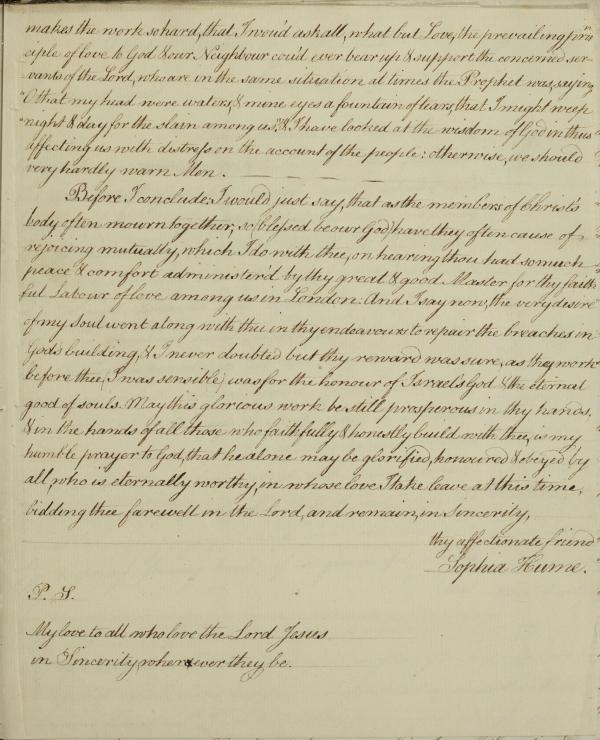 makes the work so hard, that I wou'd ask all, what but Love, the prevailing prin
ciple of love to God & our Neighbour cou'd ever bear up & support the concerned ser-
vants of the Lord, who are in the same situation at times the Prophet was, saying
"O that my head were waters, & mine eyes a fountain of tears, that I might weep
"night & day for the slain among us," & I have looked at the wisdom of God in thus
affecting us with distress on the account of the people: otherwise, we should
very hardly warn Men.
Before I conclude, I would just say, that as the members of Christ's
body often mourn together, so (blessed be our God) have they often cause of
rejoicing mutually, which I do with thee, on hearing thou had so much
peace & comfort administer'd by thy great & good Master for thy faith-
ful Labour of love among us in London: And I say now, the very desire
of my soul went along with thee in thy endeavours to repair the breaches in
God's building, & I never doubted but thy reward was sure, as the work
before thee, (I was sensible) was for the honour of Israel's God & the eternal
good of souls. May this glorious work be still prosperous in thy hands,
& in the hands of all those who faithfully & honestly build with thee, is my
humble prayer to God, that he alone may be glorified, honoured & obeyed by
all, who is eternally worthy, in whose love I take leave at this time,
bidding thee farewell in the Lord, and remain, in Sincerity,
thy affectionate friend
Sophia Hume.
P. S.
My love to all who love the Lord Jesus
in Sincerity, wherever they be.